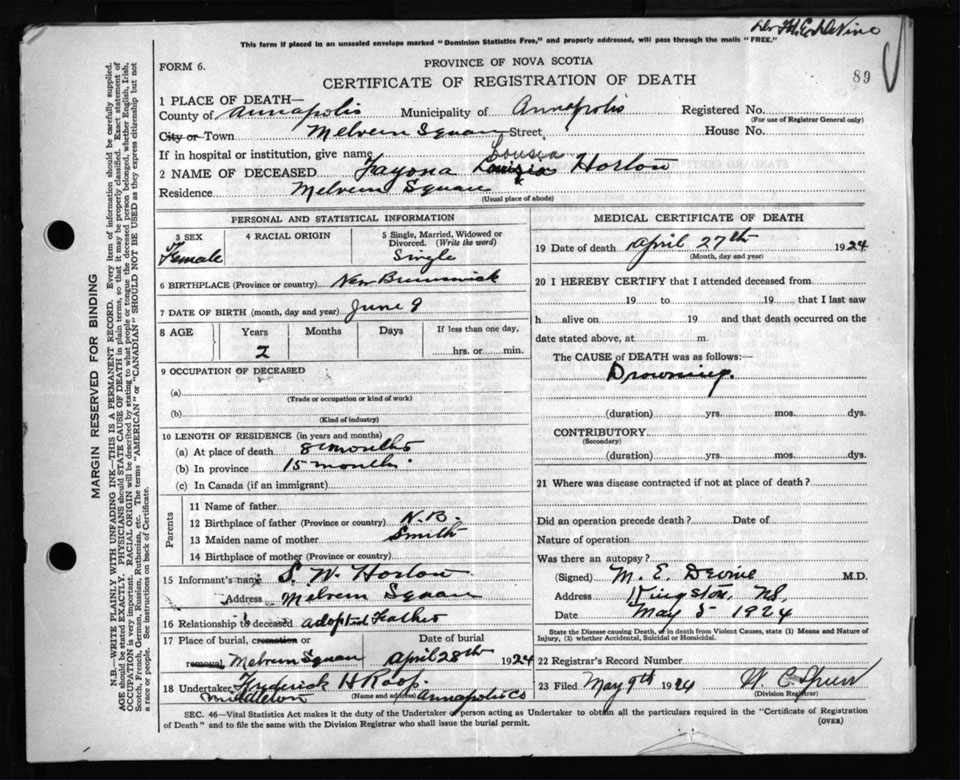 Dr M. E. Devine
This form if placed in an unsealed envelope marked "Dominion Statistics Free," and properly addressed, will pass through the mails "FREE."
FORM 6.
PROVINCE OF NOVA SCOTIA
89
CERTIFICATE OF REGISTRATION OF DEATH
1 PLACE OF DEATH—
County of Annapolis Municipality of Annapolis Registered No.
(For use of Registrar General only)
City or Town Melvern Square Street, House No.
If in hospital or institution, give name
Louisa
2 NAME OF DECEASED Fayona Horton
Residence Melvern Square
(Usual place of abode)
PERSONAL AND STATISTICAL INFORMATION
3 SEX 4 RACIAL ORIGIN 5 Single, Married, Widowed or Divorced. (Write the word)
Female Single
6 BIRTHPLACE (Province or country) New Brunswick
7 DATE OF BIRTH (month, day and year) June 9
8 AGE Years Months Days If less than one day,
2 hrs. or min.
9 OCCUPATION OF DECEASED
(a)
(Trade or occupation or kind of work)
(b)
(Kind of industry)
10 LENGTH OF RESIDENCE (in years and months)
(a) At place of death 8 months
(b) In province 15 months
(c) In Canada (if an immigrant)
Parents
11 Name of father
12 Birthplace of father (Province or country) N.B.
13 Maiden name of mother Smith
14 Birthplace of mother (Province or country)
15 Informant's name S. W. Horton
Address Melvern Square
16 Relationship to deceased adopted Father
17 Place of burial, cremation or Date of burial
removal, Melvern Square April 28th 1924
18 Undertaker Frederick H Roop
Middleton (Name and address) Annapolis Co
MEDICAL CERTIFICATE OF DEATH
19 Date of death April 27th 1924
(Month, day and year)
20 I HEREBY CERTIFY that I attended deceased from
19 to 19 that I last saw
h alive on 19 and that death occurred on the
date stated above, at m.
The CAUSE OF DEATH was as follows:—
Drowning.
(duration) yrs. mos. dys.
CONTRIBUTORY
(Secondary)
(duration) yrs. mos. dys.
21 Where was disease contracted if not at place of death?
Did an operation precede death? Date of
Nature of operation
Was there an autopsy?
(Signed) M. E. Devine M.D.
Address Kingston, NS,
Date May 5 1924
State the Disease causing Death, or in death from Violent Causes, state (1) Means and Nature of
Injury, (2) whether Accidental, Suicidal or Homicidal.
22 Registrar's Record Number
23 Filed May 9th 1924 W. C. Spurr
(Division Registrar)
SEC. 46—Vital Statistics Act makes it the duty of the Undertaker or person acting as Undertaker to obtain all the particulars required in the "Certificate of Registration
of Death" and to file the same with the Division Registrar who shall issue the burial permit.
(OVER)
MARGIN RESERVED FOR BINDING
N.B.—WRITE PLAINLY WITH UNFADING INK—THIS IS A PERMANENT RECORD. Every item of information should be carefully supplied.
AGE should be stated EXACTLY. PHYSICIANS should STATE CAUSE OF DEATH in plain terms, so that it may be properly classified. Exact statement of
OCCUPATION is very important. RACIAL ORIGIN will be described by stating to what people or tongue the deceased person belonged, whether English, Irish,
Scotch, French, German, Russian, Ruthenian, etc. The terms "AMERICAN" or "CANADIAN" SHOULD NOT BE USED as they express citizenship but not
a race or people. See instructions on back of Certificate.